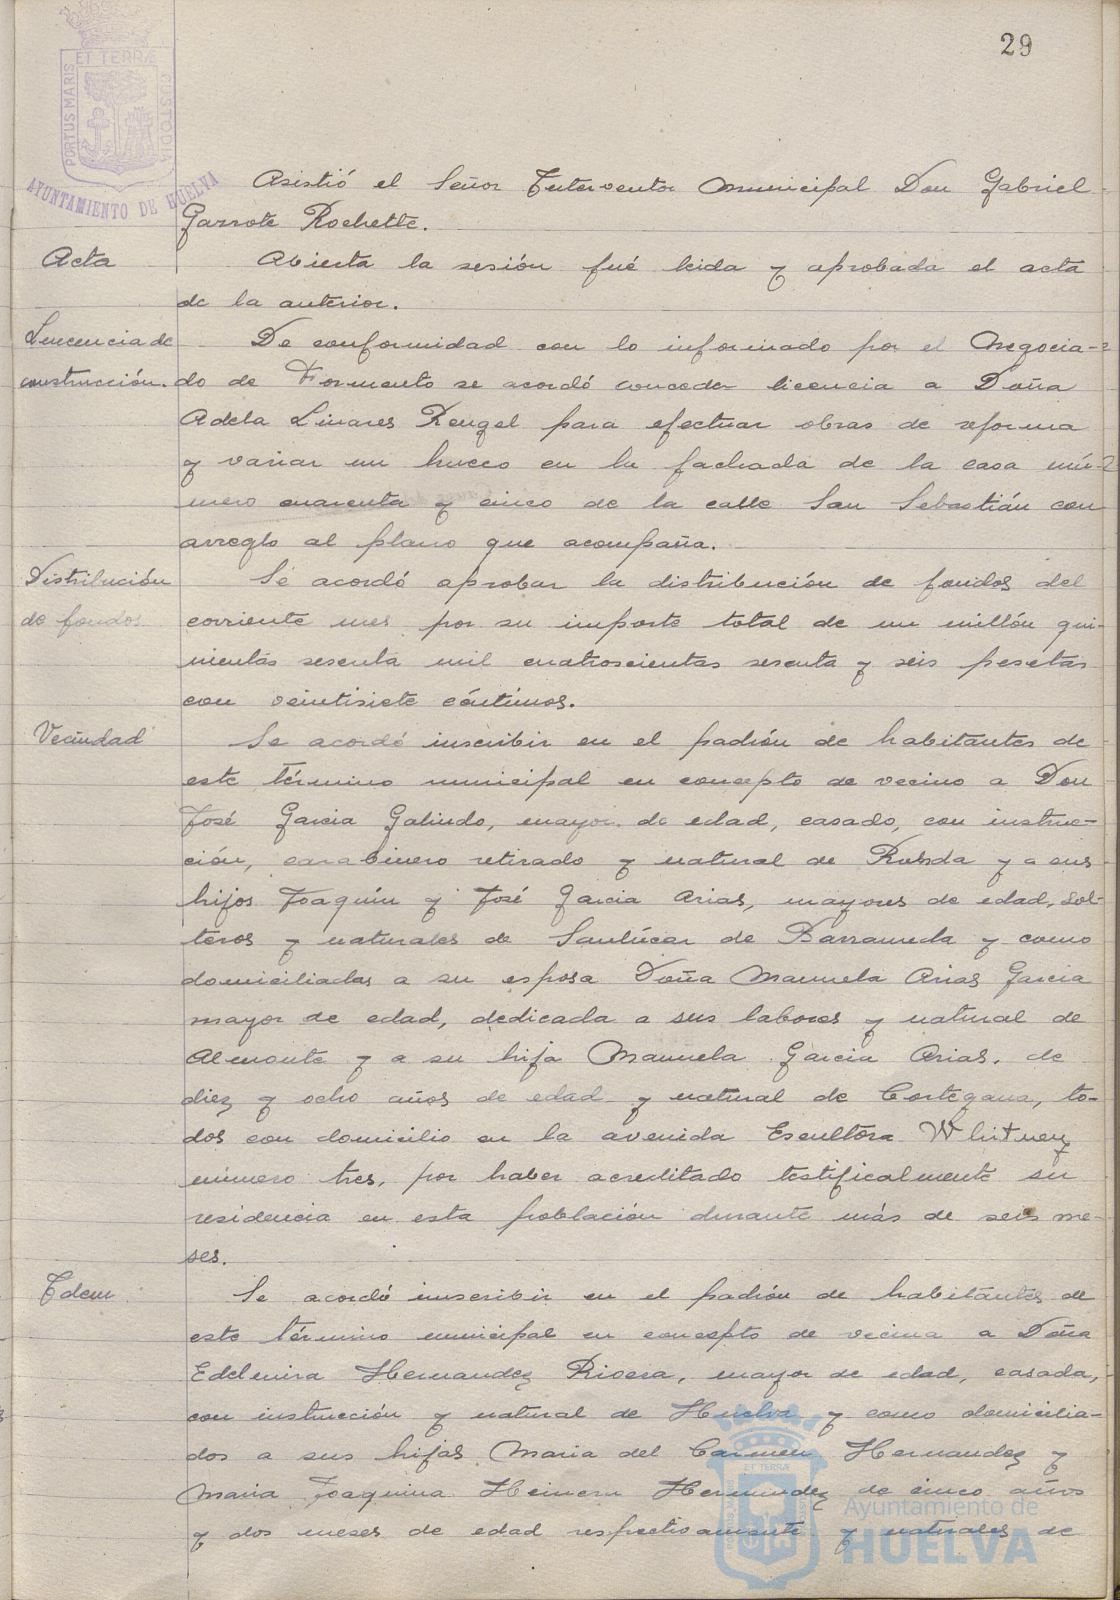 29
PORTUS MARIS ET TERRÆ CUSTODIA
AYUNTAMIENTO DE HUELVA
Asistió el Señor Interventor Municipal Don Gabriel
Garrote Rochette.
Acta
Abierta la sesión fué leida y aprobada el acta
de la anterior.
Lincencia de
construcción.
De conformidad con lo informado por el Negocia-
do de Formento se acordó conceder licencia a Doña
Adela Linares Rengel para efectuar obras de reforma
y variar un hueco en la fachada de la casa nú-
mero cuarenta y cinco de la calle San Sebastián con
arreglo al plano que acompaña.
Distribución
de fondos
Se acordó aprobar la distribución de fondos del
corriente mes por su importe total de un millón qui-
nientas sesenta mil cuatroscientas sesenta y seis pesetas
con veintisiete céntimos.
Vecindad
Se acordó inscribir en el padrón de habitantes de
este término municipal en concepto de vecino a Don
José Garcia Galindo, mayor de edad, casado, con instruc-
ción, carabinero retirado y natural de Ronda y a sus
hijos Joaquín y José Garcia Arias, mayores de edad, sol-
teros y naturales de Sanlúcar de Barrameda y como
domiciliadas a su esposa Doña Manuela Arias Garcia
mayor de edad, dedicada a sus labores y natural de
Almonte y a su hija Manuela Garcia Arias, de
diez y ocho años de edad y natural de Cortegana, to-
dos con domicilio en la avenida Escultora Whitney
número tres, por haber acreditado testificalmente su
residencia en esta población durante más de seis me-
ses.
Idem
Se acordó inscribir en el padrón de habitantes de
este término municipal en concepto de vecina a Doña
Edelmira Hernandez Rivera, mayor de edad, casada,
con instrucción y natural de Huelva y como domicilia-
dos a sus hijas Maria del Carmen Hernandez y
Maria Joaquina Hernandez de cinco años
y dos meses de edad respectivamente y naturales de
Ayuntamiento de
HUELVA